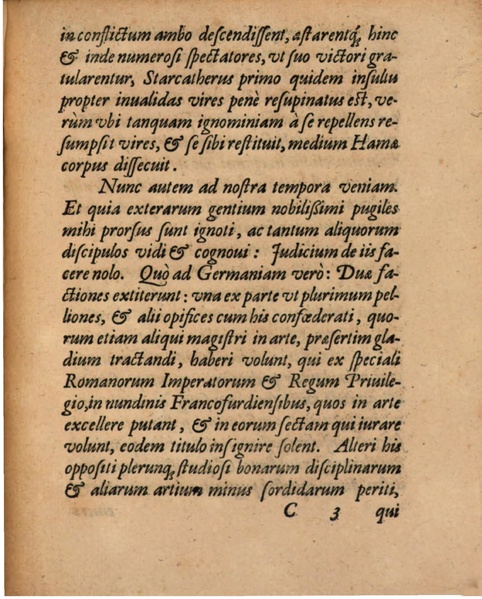 in conflictum ambo descendissent, astarentq́, hinc
& inde numerosi spectatores, vt suo victori gra-
tularentur, Starcatherus primo quidem insultu
propter inualidas vires penè resupinatus est, ve-
rùm vbi tanquam ignominiam à se repellens re-
sumpsit vires, & se sibi restituit, medium Hamæ
corpus dissecuit.
Nunc autem ad nostra tempora veniam.
Et quia exterarum gentium nobilißimi pugiles
mihi prorsus sunt ignoti, ac tantum aliquorum
discipulos vidi & cognoui: Judicium de iis fa-
cere nolo. Quò ad Germaniam verò: Duæ fa-
ctiones extiterunt: vna ex parte vt plurimum pel-
liones, & alii opifices cum his confœderati, quo-
rum etiam aliqui magistri in arte, præsertim gla-
dium tractandi, haberi volunt, qui ex speciali
Romanorum Imperatorum & Regum Priuile-
gio, in nundinis Francofurdiensibus, quos in arte
excellere putant, & in eorum sectam qui iurare
volunt, eodem titulo insignire solent. Alteri his
oppositi plerunq́, studiosi bonarum disciplinarum
& aliarum artium minus sordidarum periti,
C 3 qui